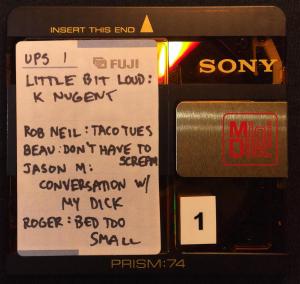 INSERT THIS END
FUJI
UPS 1
LITTLE BIT LOUD:
K NUGENT
ROB NEIL: TACO TUES
BEAU: DON'T HAVE TO
SCREAM
JASON M:
CONVERSATION W/
MY DICK
ROGER: BED TOO
SMALL
SONY
Mini
Disc
1
PRISM:74